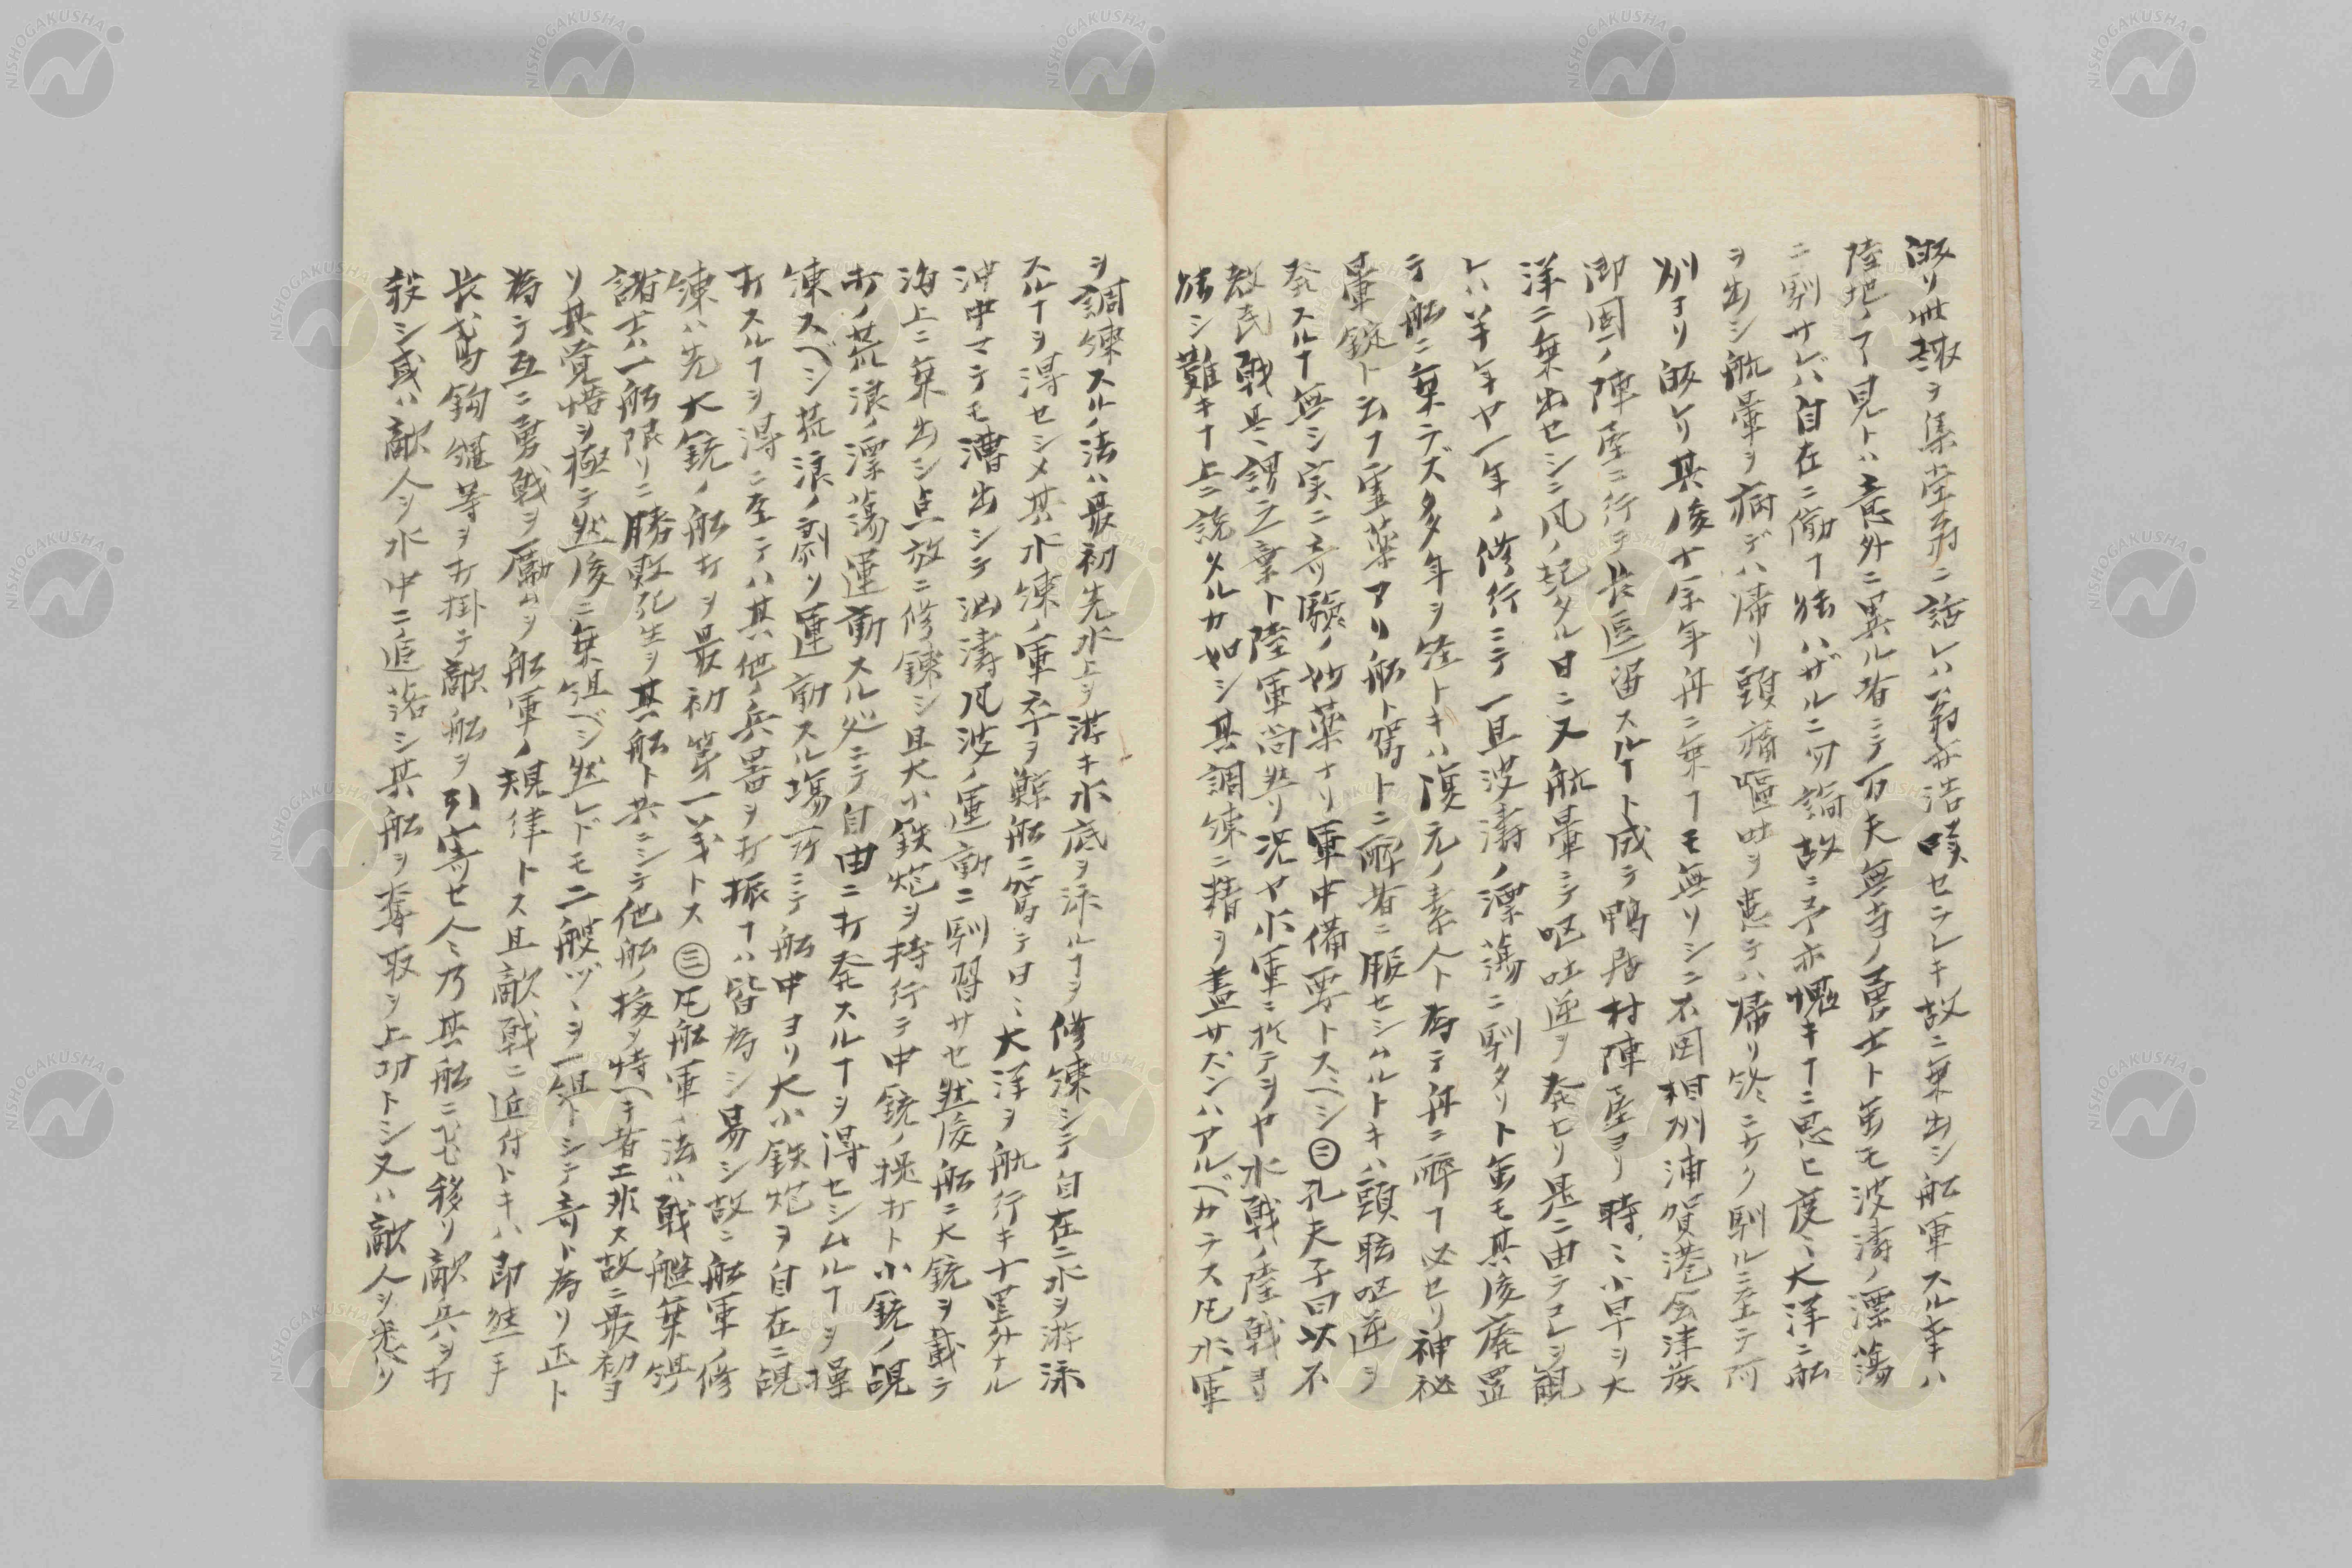 皈リ此趣ヲ集堂翁ニ話レハ翁亦浩嘆セラレキ故ニ乗出シ船軍スル事ハ
陸地ノ丁見トハ意外ニ異ル者ニテ万夫無当ノ勇士ト虽モ波濤ノ漂蕩
ニ馴サレバ自在ニ働ク𪜈ハザルニ
ヲ出シ舩暈ヲ病デハ帰リ頭痛嘔吐ヲ患テハ帰リ終ニケク馴ルニ至テ阿
州ヨリ皈レリ其後十余年舟ニ乗ヿモ無リシニ不図相州浦賀港会津侯
御固ノ陣屋ニ行テ長逗留スルヿト成テ鴨居村陣屋ヨリ時ミ小早シ大
洋ニ乗出セシニ風ノ起タル日ニ又舩暈シテ呕吐逆ヲ発セリ是ニ由テコレヲ観
レハ半年ヤ一年ノ修行ニテ一旦波濤ノ漂蕩ニ馴タリト虽モ其後廃置
テ船ニ乗ラズ多年ヲ経トキハ復元ノ素人ト為テ舟ニ酔ヿ必セリ神祕
軍錠ト云フ霊薬アリ船ト駕トニ酔者ニ服セシムルトキハ頭眩呕逆ヲ
発スルヿ無シ実ニ奇験ノ妙薬ナリ軍中備要トスベシ㊁孔夫子曰以不
教民戦其ミ謂之棄ト陸軍尚然リ況ヤ水軍ニ於テヲヤ水戦ノ陸戦ヨリ
難キヿ上ニ説タルカ如シ其調練ニ精ヲ盡サズンハアルベカラス凡水軍
ヲ調練スルノ法ハ最初先水上ヲ游キ水底ヲ泳ルヿヲ修練シテ自在ニ水ヲ游泳
スルヿヲ得セシメ其水練ノ軍卒ヲ鯨船ニ駕テ日ミ大洋ヲ航行キ十里外ナル
沖中マテモ漕出シテ洶濤風波ノ運動ニ馴習サセ然後船ニ大銃ヲ載テ
海上ニ乗出シ点放ニ修錬シ且大小鉄炮ヲ持行テ中銃ノ挺打ト小銃ノ覘
打ノ荒浪ノ漂蕩運動スル処ニテ自由ニ打発スルヿヲ得セシムルヿヲ操
練スベシ荒浪ノ劇リ運動スル場所ニテ船中ヨリ大小鉄炮ヲ自在ニ覘
打スルヿヲ得ニ至テハ其他ノ兵器ヲ打振ヿハ皆為シ易シ故ニ船軍ノ修
練ハ先大銃ノ船打ヲ最初第一義トス㊂凡船軍ノ法ハ戦艦乗組
諸士一船限リニ勝敗死生ヲ其船ト共ニシテ他船ノ援ヲ恃ヘキ者ニ非ス故ニ最初ヨ
リ其覚悟ヲ極テ然後ニ乗組ベシ然レドモ二艘ヅヽヲ一組トシテ奇ト為リ正ト
為テ互ニ勇戦ヲ励ムヲ船軍ノ規律トス且敵戦ニ近付トキハ即熊手
長戈鳶鈎鎌等ヲ打掛テ敵船ヲ引寄セ人ミ乃其船ニ飛移リ敵兵ヲ打
殺シ或ハ敵人ヲ水中ニ追落シ其船ヲ奪取ヲ上功トシ又ハ敵人ヲ悉ク